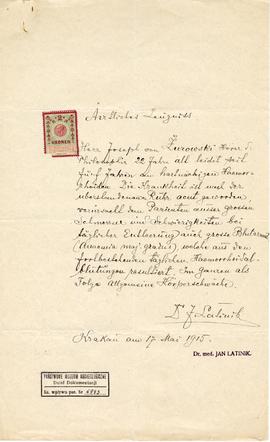 Ärztliches Zeugniss
2
KRONEN
Herr Joseph von Żurowski Hörer d.
Philosophie 22 Jahre alt leidet seit
fünf Jahren an hartnäckigen Haemorr-
hoiden. Die Krankheit ist nach der
überstandenen Ruhr acut geworden
verursacht dem Patienten ausser grossen
Schmerzen und Schwierigkeiten bei
täglicher Entleerung auch grosse Blutarmut
(Anaemia maj. gradus), welche aus den
fortbestehenden täglichen Haemorrhoidal-
blutungen resultiert. Im ganzen als
Folge allgemeine Körperschwäche.
Dr J. Latinik
Krakau am 17. Mai 1915.
Dr. med. JAN LATINIK.
PAŃSTWOWE MUZEUM ARCHEOLOGICZNE
Dział Dokumentacji
Ks. wpływu poz. Nr